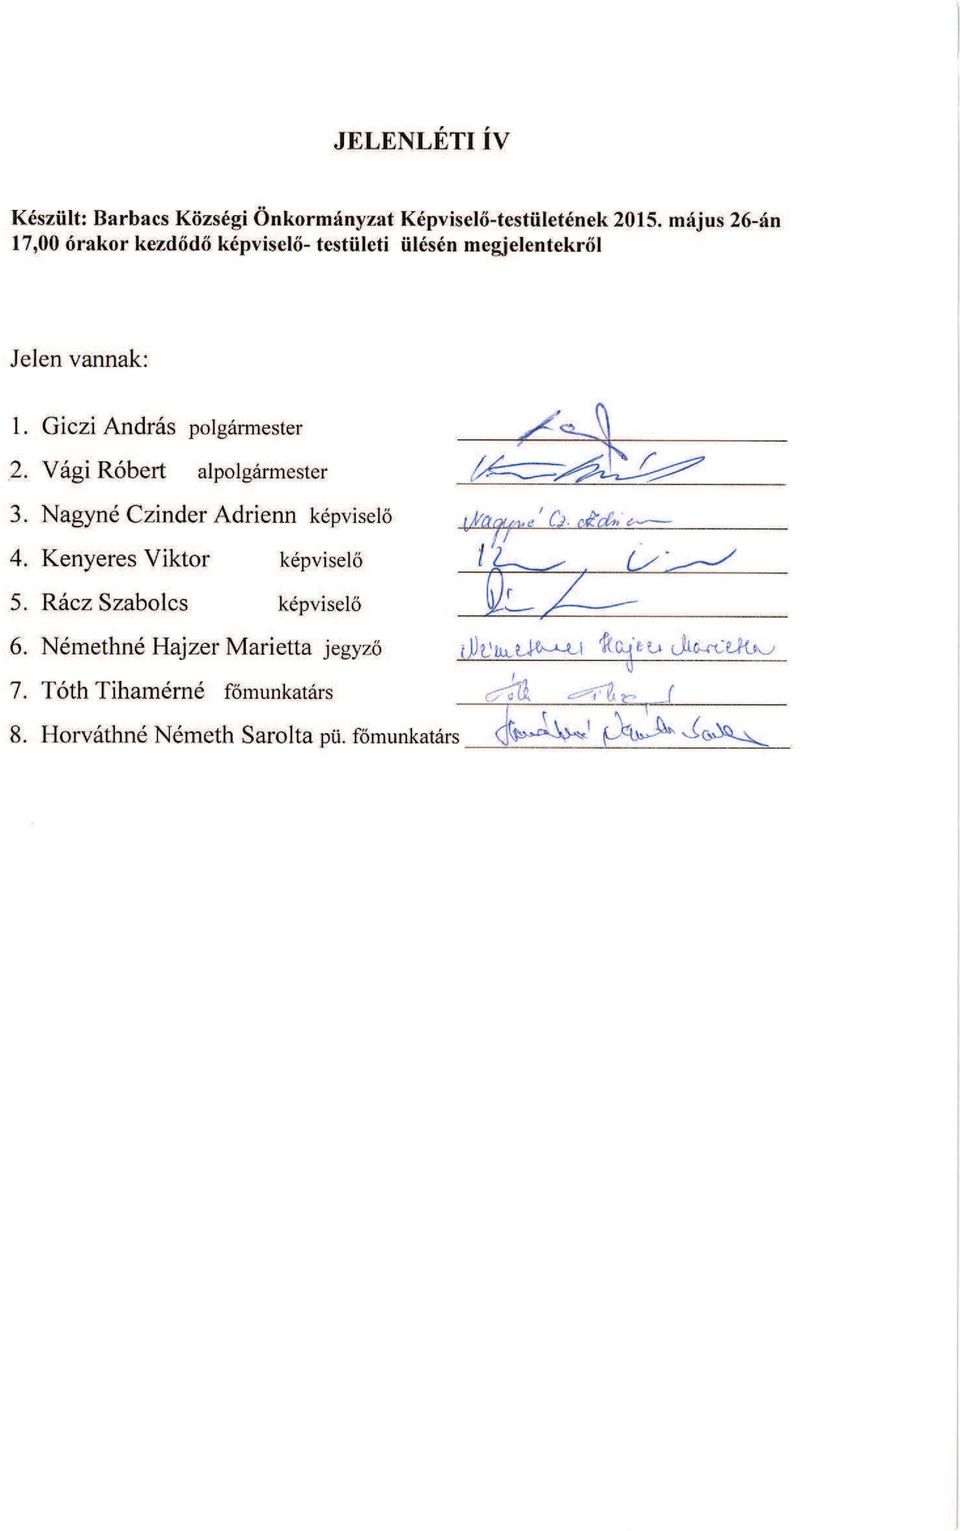 JELENLÉTI ÍV
Készült: Barbacs Községi Önkormányzat Képviselő-testületének 2015. május 26-án
17,00 órakor kezdődő képviselő- testületi ülésén megjelentekről
Jelen vannak:
1. Giczi András polgármester
2. Vági Róbert alpolgármester
3. Nagyné Czinder Adrienn képviselő Nagyné Cz. Adrienn
4. Kenyeres Viktor képviselő
5. Rácz Szabolcs képviselő
6. Némethné Hajzer Marietta jegyző Némethné Hajzer Marietta
7. Tóth Tihamérné főmunkatárs Tóth
8. Horváthné Németh Sarolta pü. főmunkatárs Horváthné Németh Sarolta